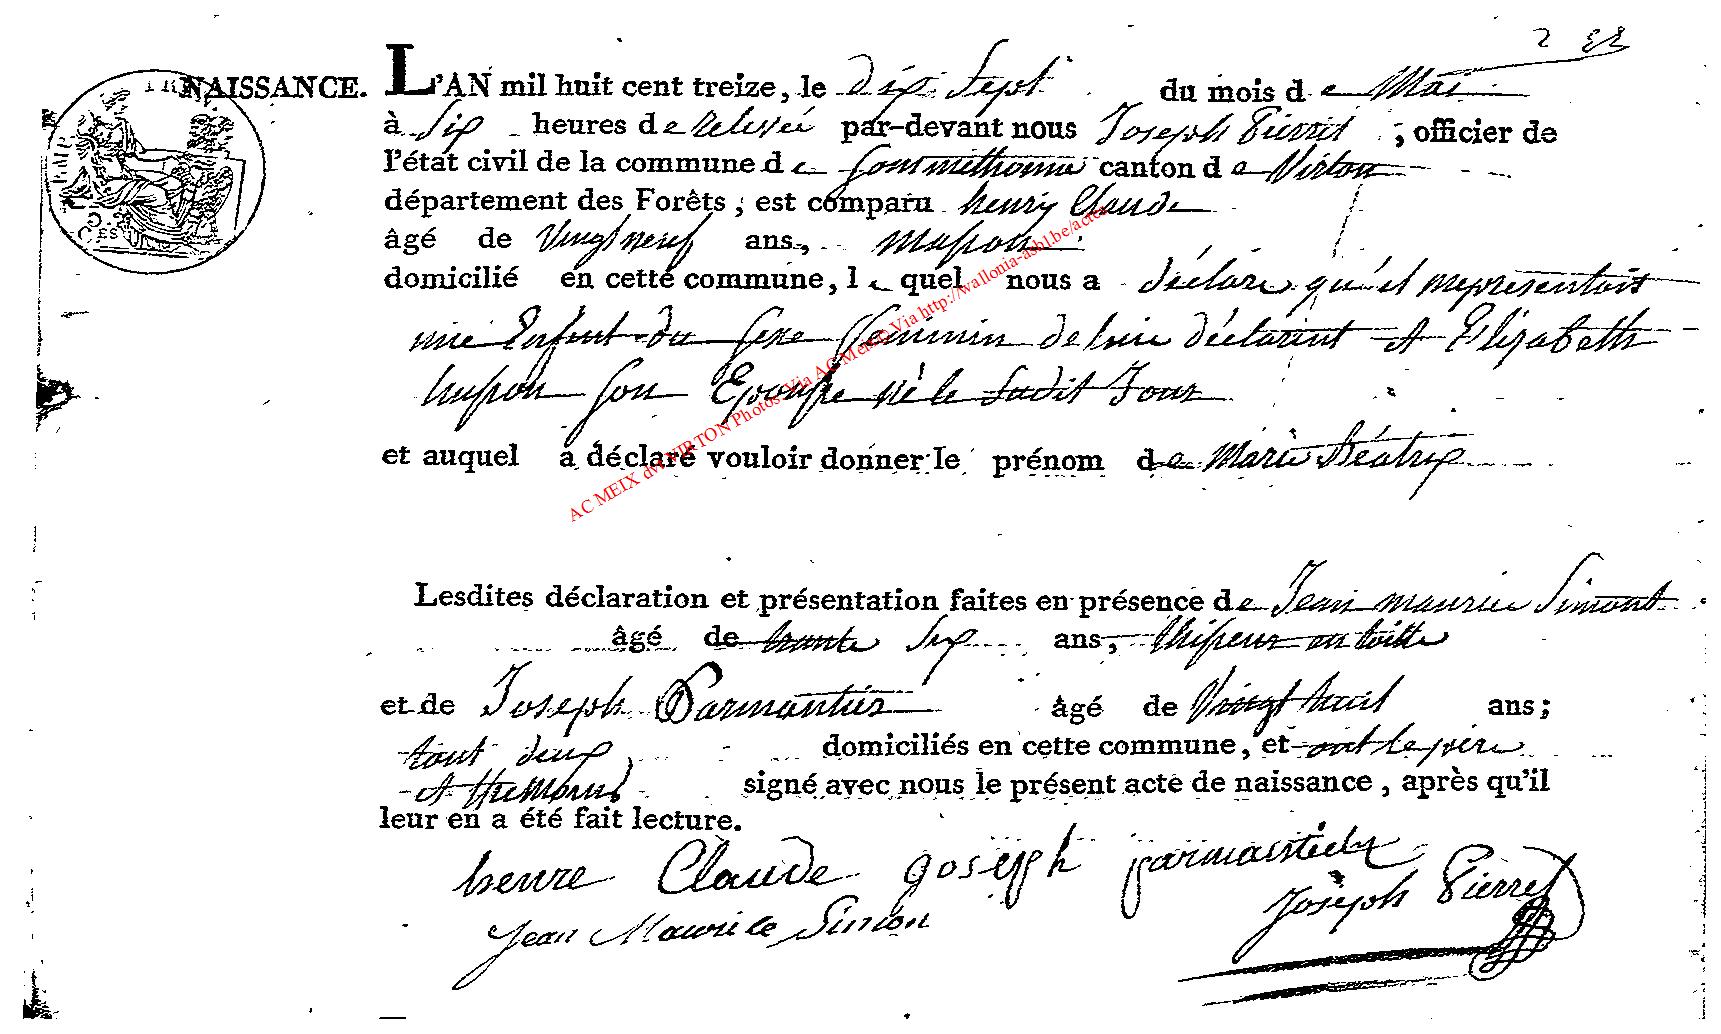 2 32
NAISSANCE. L'AN mil huit cent treize, le dix Sept du mois de Mai
à Six heures de relevée par-devant nous Joseph Pierret, officier de
l'état civil de la commune de Sommethonne canton de Virton
département des Forêts, est comparu henry Claude
âgé de Vingt neuf ans, masson
domicilié en cette commune, lequel nous a déclaré qu'il nepresentois
une Enfent du sexe feminin de luie déclarent et Elizabeth
husson son Epousse né le Sudit Jour
et auquel a déclaré vouloir donner le prénom de Marie Béatrix
Lesdites déclaration et présentation faites en présence de Jean maurice Simont
âgé de trante Six ans, thisseur en toille
et de Joseph Parmantier âgé de Vingt huit ans;
tout deux domiciliés en cette commune, et ont le père
et themoins signé avec nous le présent acte de naissance, après qu'il
leur en a été fait lecture.
henre Claude joseph parmantier
Jean Maurice Simon Joseph Pierret
AC MEIX dvt VIRTON Photos Via AC Meix - Via http://wallonia-asbl.be/actes